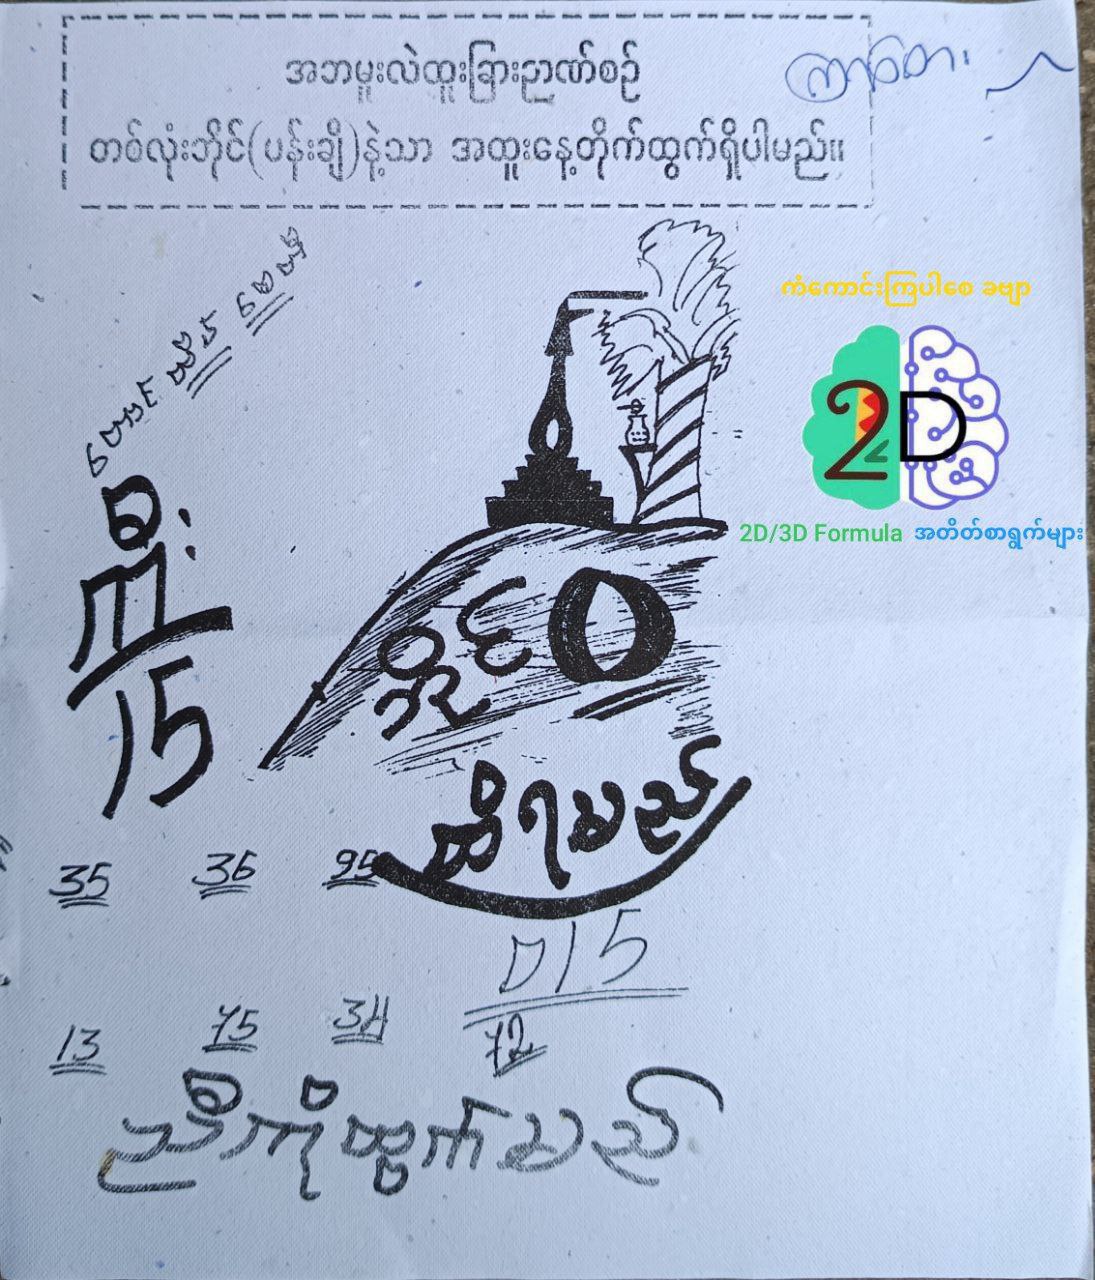 အဘမှူးလဲထူးခြားဉာဏ်စဉ်
တစ်လုံးဘိုင်(ပန်းချီ)နဲ့သာ အထူးနေ့တိုက်ထွက်ရှိပါမည်။
ကံကောင်းကြပါစေ ခဗျာ
2D
2D/3D Formula အတိတ်စာရွက်များ
15
ထိရမည်
35 36 95
015
13 75 34
72
ညီကိုထွက်မည်